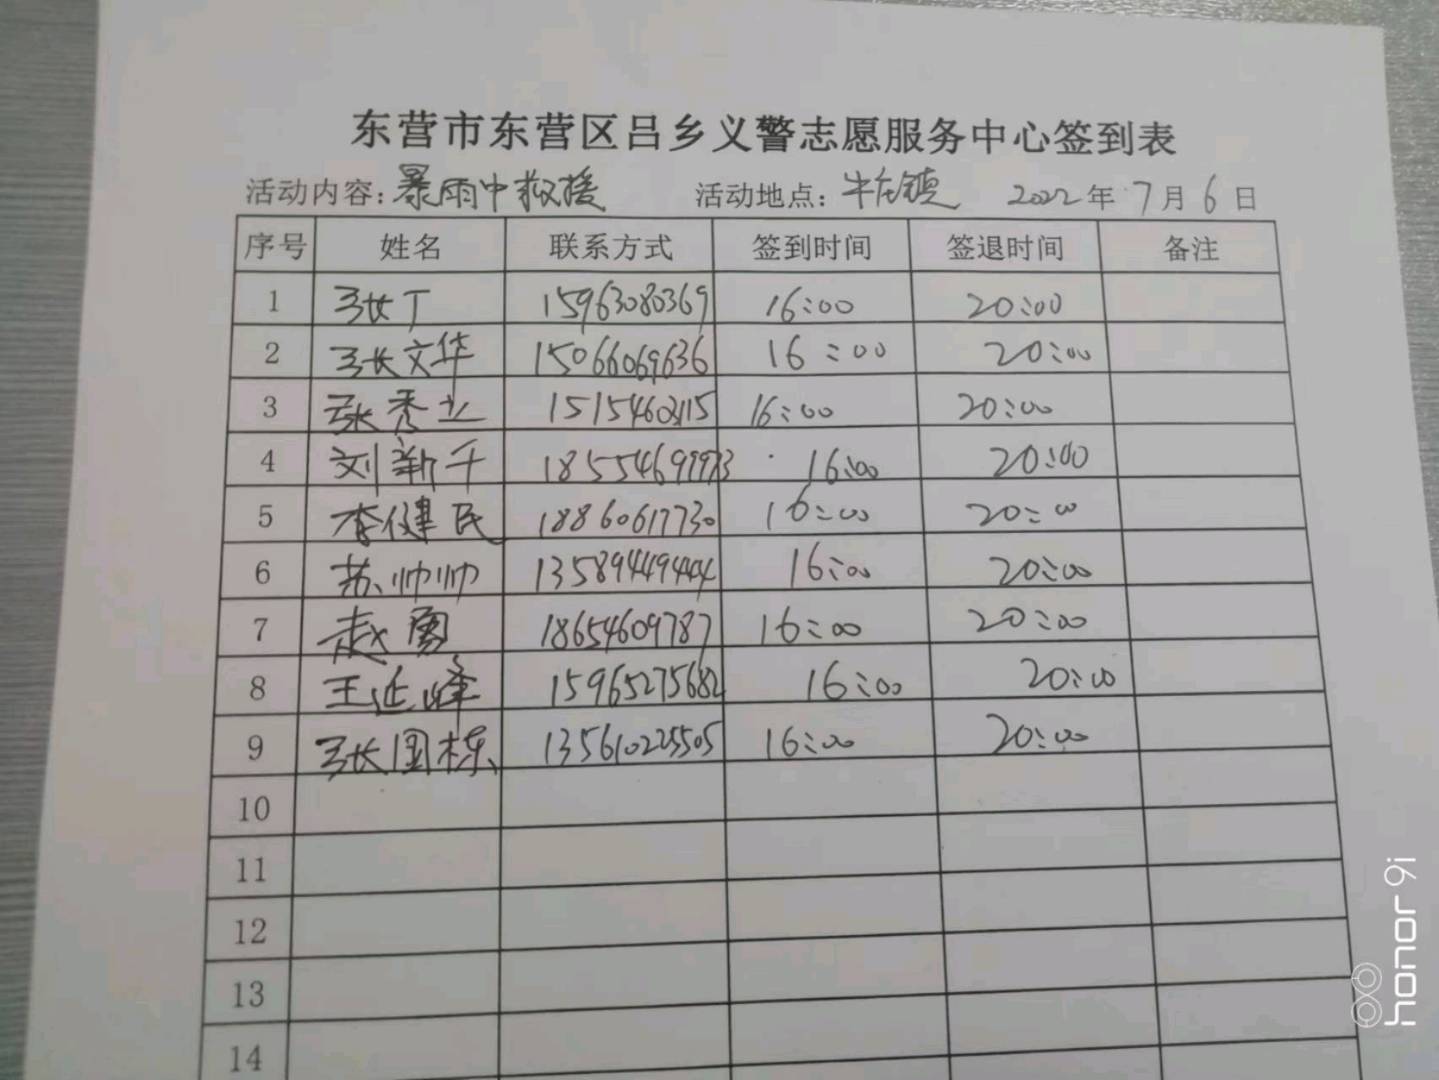 东营市东营区吕乡义警志愿服务中心签到表
活动内容:暴雨中救援 活动地点:牛庄镇 2022年7月6日
序号 姓名 联系方式 签到时间 签退时间 备注
1 张丁 15963080369 16:00 20:00
2 张文华 15066069636 16:00 20:00
3 张秀立 16:00 20:00
4 刘新千 16:00 20:00
5 李健民 18860617730 16:00 20:00
6 苏帅帅 13589449444 16:00 20:00
7 赵勇 18654609787 16:00 20:00
8 王延峰 15965275682 16:00 20:00
9 张国栋 16:00 20:00
10
11
12
13
14
honor 9i